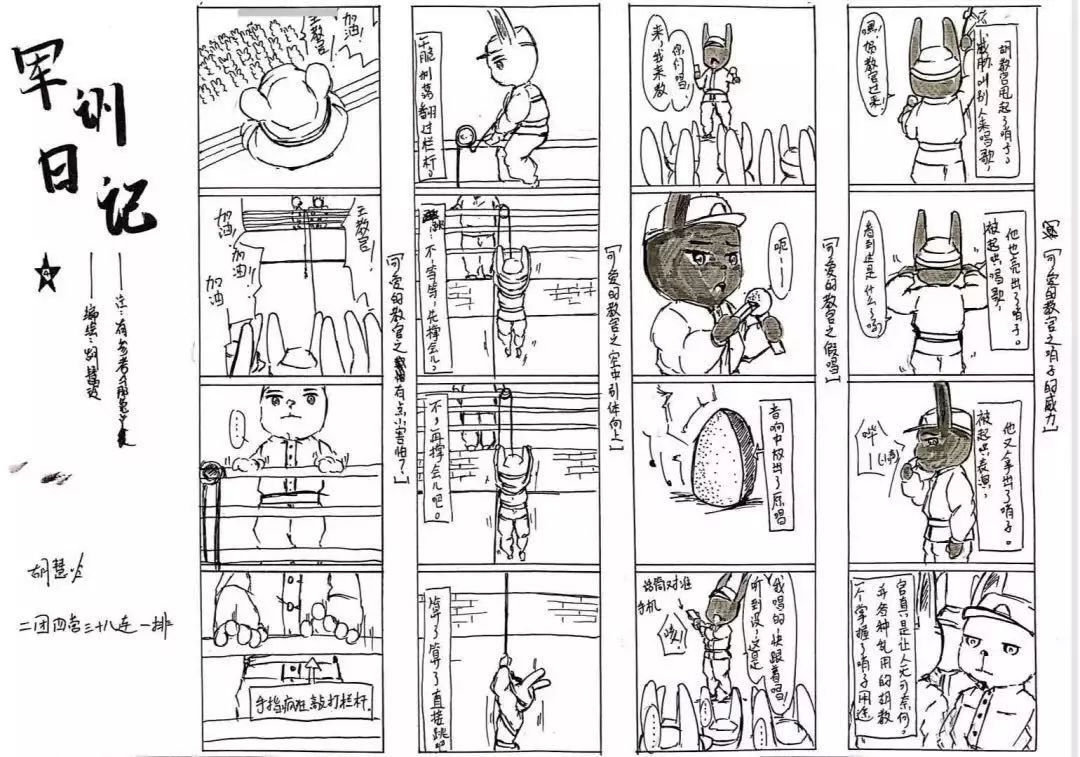 军训日记
胡慧
二团四营三十八连一排
王教官!
加油!
加油!
王教官!
加油!
加油!!
加油!
……
手指疯狂敲打栏杆。
【可爱的教官之
有点小害怕?】
干脆
翻过栏杆。
不,等等,先撑会儿。
不,再撑会儿吧。
算了算了直接跳吧
【可爱的教官之空中引体向上】
来,我来教
你们唱!
呃——
音响中放出了原唱
话筒对准
手机
咳!
我唱的
快跟着唱!
听到没,这是
……
……
【可爱的教官之假唱】
胡教官甩起了哨子。
威胁叫别人来唱歌,
嘿!
教官过来!
他也亮出了哨子。
被起哄唱歌,
看到这是什么了吗
他又拿出了哨子。
被起哄表演,
哔——
官真是让人无可奈何。
各种乱用的胡教
一个掌握了哨子用途
【可爱的教官之哨子的威力】